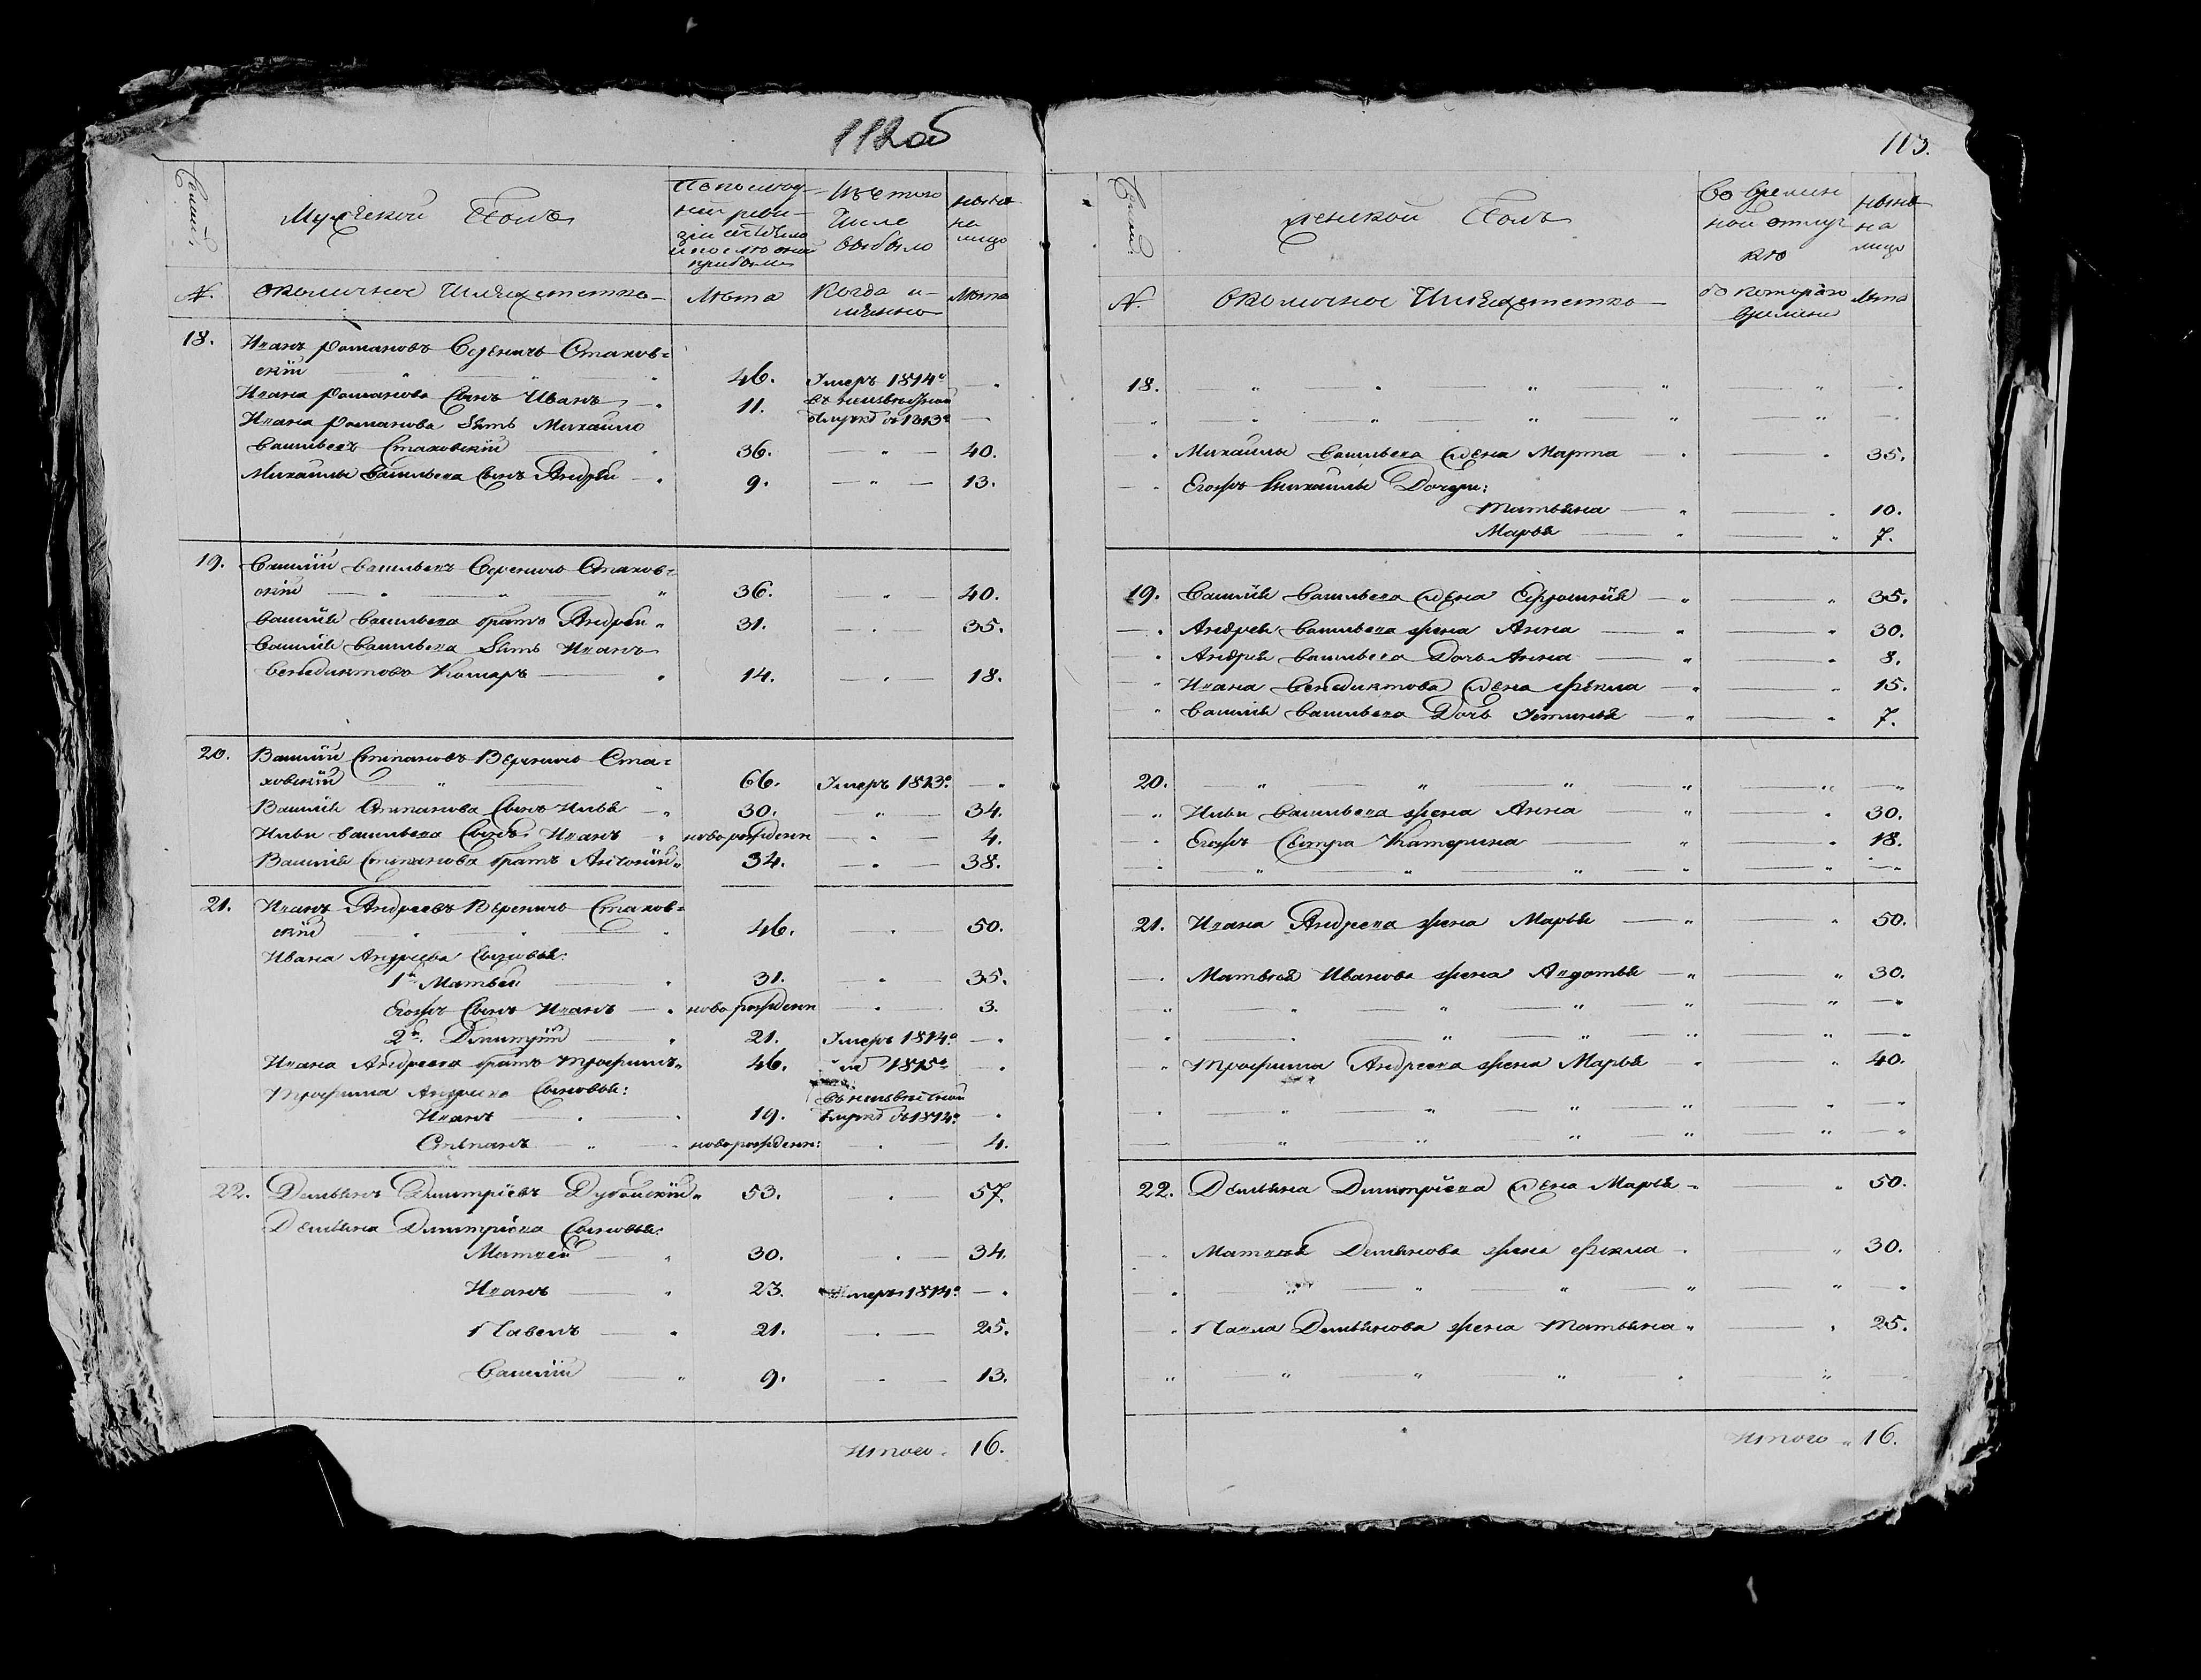 112об
Семьи
Мужеской Полъ
По послед-
ней реви-
зіи состояло
и после оной
прибыло
Изъ того
Числа
выбыло
ныне
на
лицо
№.
околичное Шляхетство
Лѣта
Когда и-
менно
Лѣта
18. Иванъ Романовъ Вереничъ Стахов-
скій 46. Умеръ 1814го
Ивана Романова Сынъ Иванъ 11. въ неизвѣстной
отлучкѣ съ 1813го
Ивана Романова Зять Михайло
Васильевъ Стаховскій 36. 40.
Михайлы Васильева Сынъ Андрей 9. 13.
19. Василій Васильевъ Вереничъ Стахов-
скій 36. 40.
Василія Васильева братъ Андрей 31. 35.
Василія Васильева Зять Иванъ
Венедиктовъ Комаръ 14. 18.
20. Василій Степановъ Вереничъ Ста-
ховскій 66. Умеръ 1813го
Василія Степанова Сынъ Илья 30. 34.
Ильи Васильева Сынъ Иванъ новорожденн 4.
Василія Степанова братъ Антоній 34. 38.
21. Иванъ Андреевъ Вереничъ Стахов-
скій 46. 50.
Ивана Андреева Сыновья:
1й Матвей 31. 35.
Егожъ Сынъ Иванъ новорожденн 3.
2й. Дмитрій 21. Умеръ 1814го
Ивана Андреева братъ Трофимъ 46. 1815го
Трофима Андреева Сыновья:
Иванъ 19. въ неизвѣстной
отлучкѣ съ 1814го
Степанъ новорожденн: 4.
22. Демьянъ Дмитріевъ Дубойскій 53. 57.
Демьяна Дмитріева Сыновья:
Матвей 30. 34.
Иванъ 23. Умеръ 1814го
Павелъ 21. 25.
Василій 9. 13.
Итого 16.
113.
Семьи
Женской Полъ
Во времен
ной отлуч
кѣ
ныне
на
лицо
№.
околичное Шляхетство
съ котораго
времени
Лѣта
18.
Михайлы Васильева Жена Марта 35.
Егожъ Михайлы Дочери:
Татьяна 10.
Марья 7.
19. Василія Васильева Жена Ефросинія 35.
Андрея Васильева жена Анна 30.
Андрея Васильева Дочь Анна 8.
Ивана Венедиктова Жена Фекла 15.
Василія Васильева Дочь Устинья 7.
20.
Ильи Васильева жена Анна 30.
Егожъ Сестра Катерина 18.
21. Ивана Андреева жена Марья 50.
Матвея Иванова жена Авдотья 30.
Трофима Андреева жена Марья 40.
22. Демьяна Димитріева Жена Марья 50.
Матвея Демьянова жена Фекла 30.
Павла Демьянова жена Татьяна 25.
Итого 16.